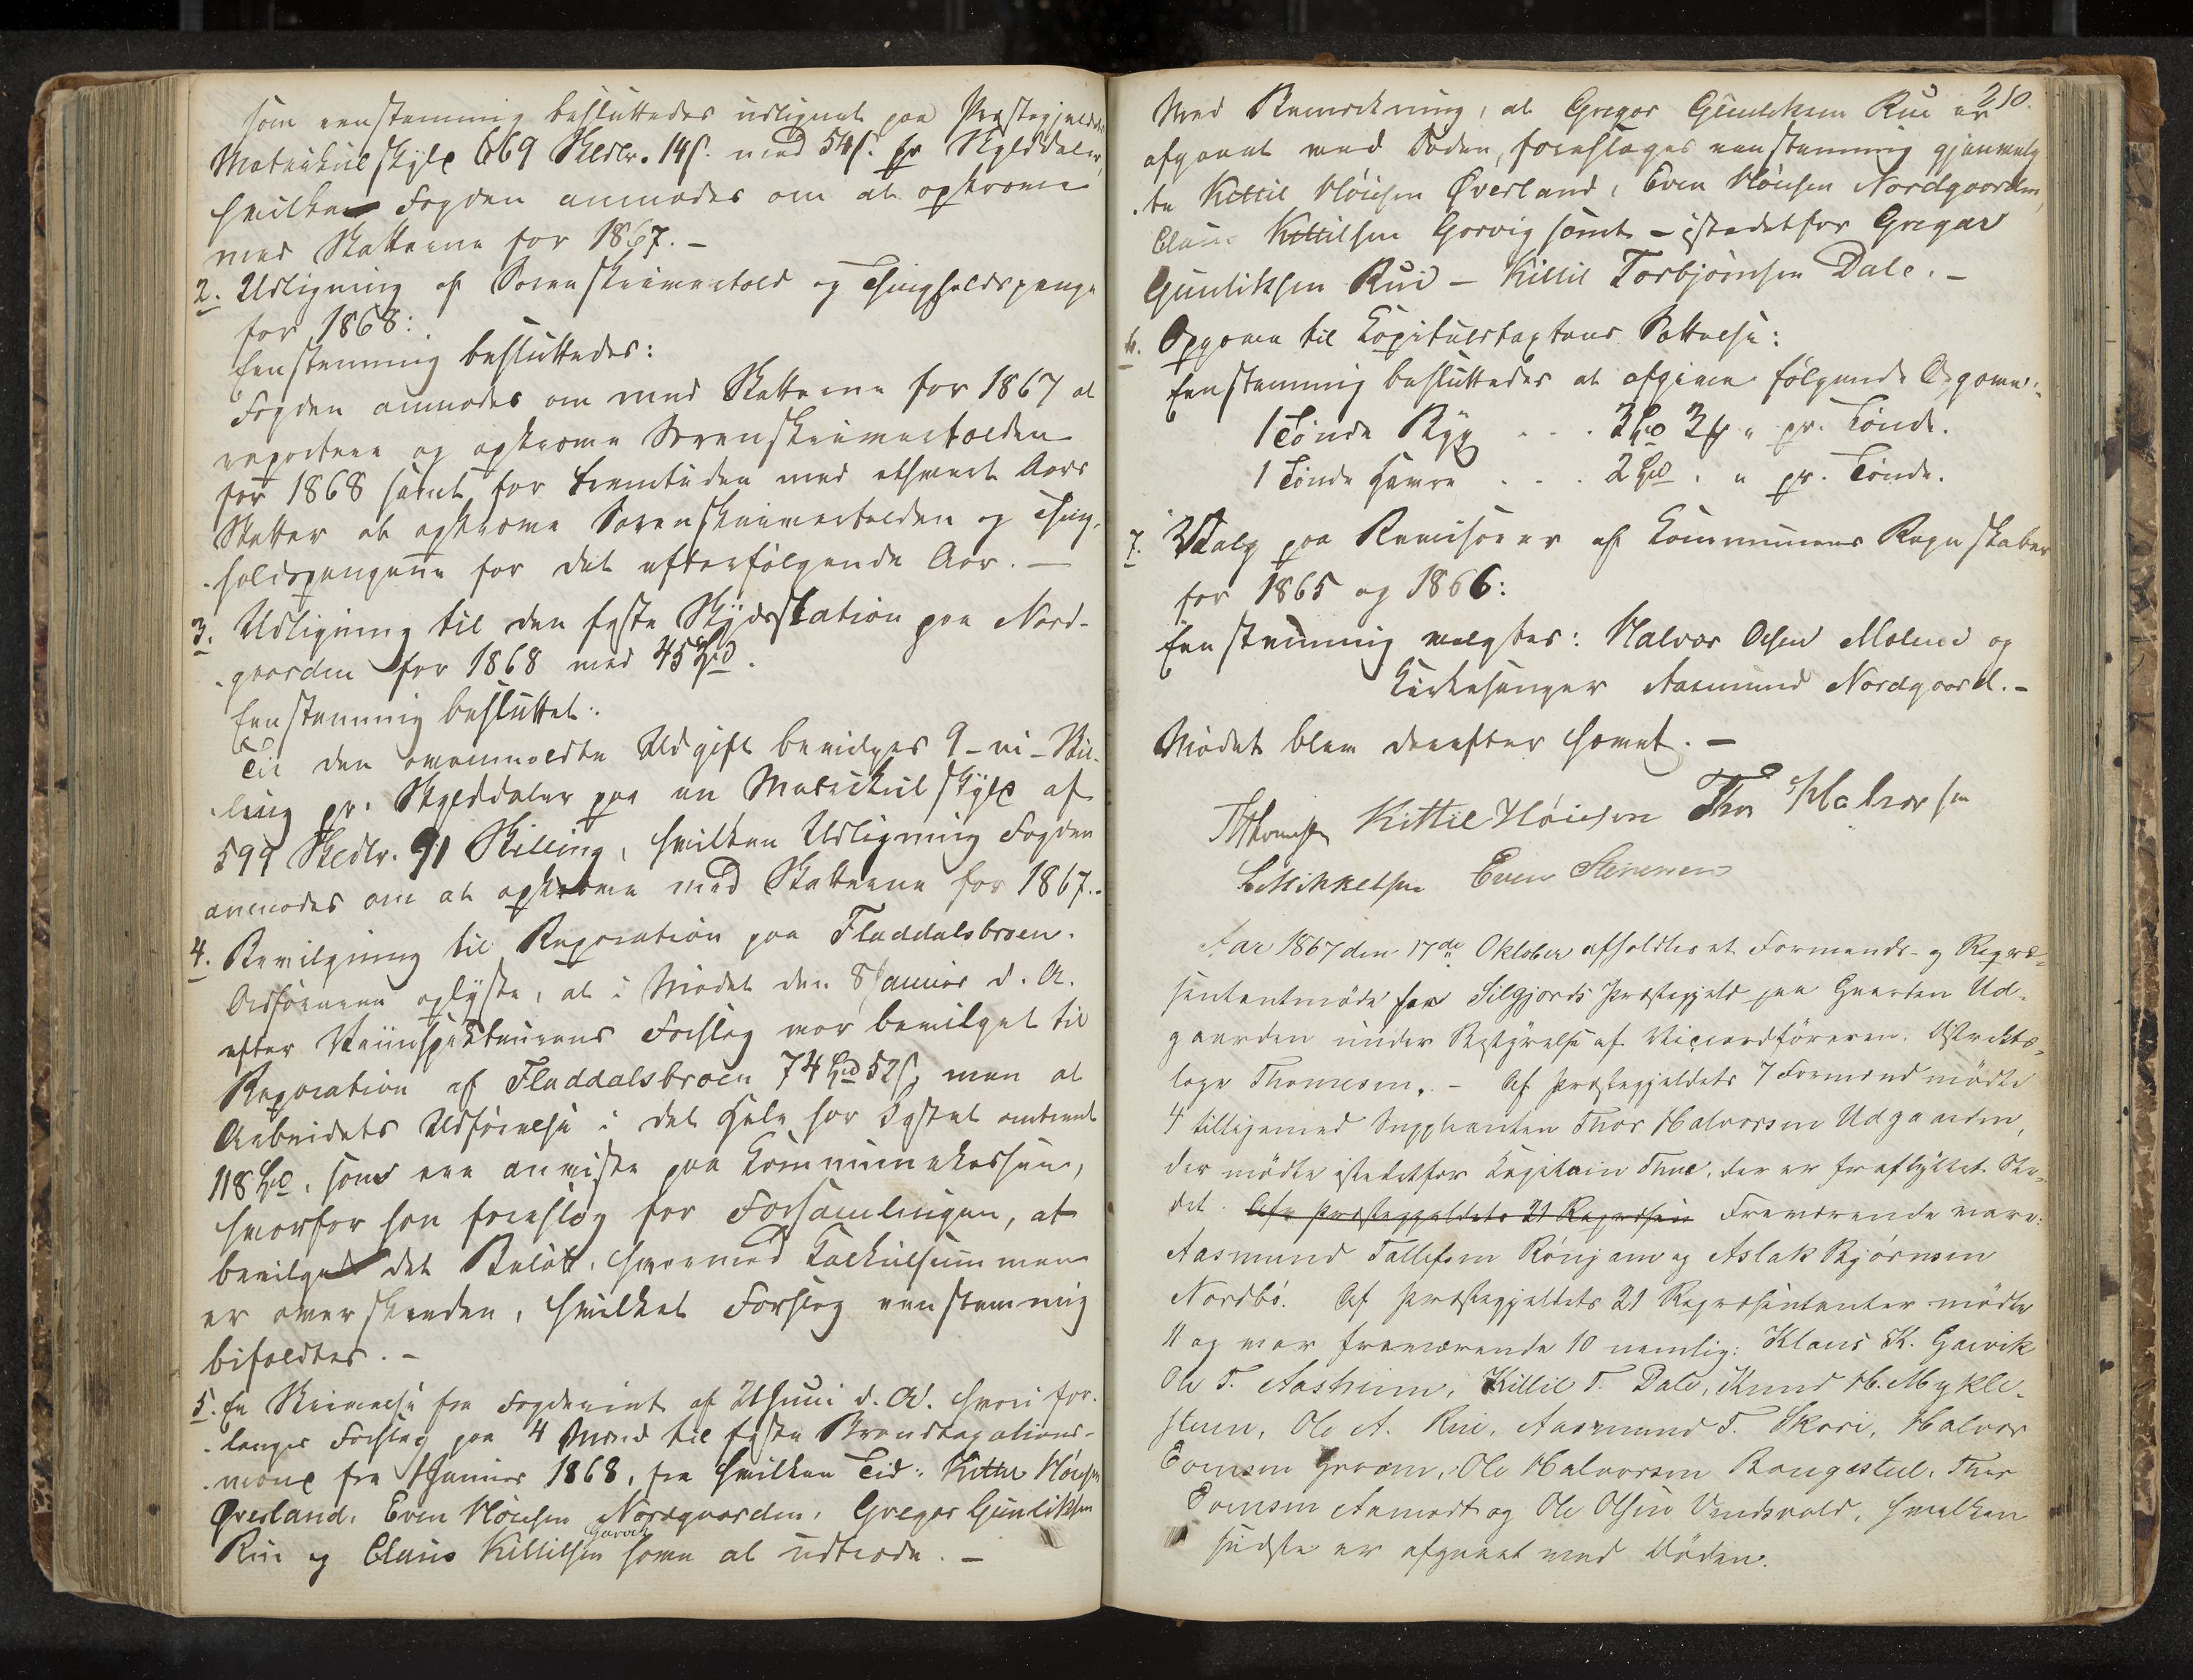 som eenstemmig besluttedes udlignet paa Præstegjeldets
Matrikulskyld 669 Skldlr. 14 s. med 54 s. pr Skylddaler,
hvilket Fogden anmodes om at opkræve
med Skatterne for 1867. –
2. Udligning af Sorenskrivertold og Thingholdspenge
for 1868:
Eenstemmig besluttedes:
Fogden anmodes om med Skatterne for 1867 at
repartere og opkræve Sorenskrivertolden
for 1868 samt for Fremtiden med ethvert Aars
Skatter at opkræve Sorenskrivertolden og Thing-
holdspengene for det efterfølgende Aar. –
3. Udligning til den faste Skydsstation paa Nord-
gaarden for 1868 med 45 Spd.
Eenstemmig besluttet:
Til den ovenmeldte Udgift bevilges 9 – ni – Skil-
ling pr. Skylddaler paa en Matrikulskyld af
599 Skldlr. 91 Skilling, hvilken Udligning Fogden
anmodes om at opkræve med Skatterne for 1867. –
4. Bevilgning til Reparation paa Fladdalsbroen.
Ordføreren oplyste, at i Mødet den 8 Januar d. A.
efter Veiinspekteurens Forslag var bevilget til
Reparation af Fladdalsbroen 74 Spd 52 s, men at
Arbeidets Udførelse i det Hele har kostet omtrent
118 Spd, som ere anviste paa Kommunekassen,
hvorfor han foreslog for Forsamlingen, at
bevilge det Beløb, hvormed Kalkulsummen
er overskreden, hvilket Forslag eenstemmig
bifaldtes. –
5. En Skrivelse fra Fogderiet af 21 Juni d. A. hvori for-
langes Forslag paa 4 Mænd til faste Branntaxations-
mænd fra 1 Januar 1868, fra hvilken Tid: Kittil Høiesen
Øverland, Even Høiesen Nordgaarden, Gregar Gunliksen
Rui og Claus Kittilsen Garvik have at udtræde. –
210.
Med Bemærkning, at Gregar Gunliksen Rui er
afgaaet ved Døden, foreslages eenstemmig gjenvalg-
te Kittil Høiesen Øverland, Even Høiesen Nordgaarden,
Claus Kittilsen Garvig samt – istedetfor Gregar
Gunliksen Rui – Kittil Torbjørnsen Dale. –
6. Opgave til Kapitelstaxtens Sættelse:
Eenstemmig besluttedes at afgive følgende Opgave:
1 Tønde Byg . . . 3 Spd " pr. Tønde.
1 Tønde Havre . . . 2 Spd " " pr. Tønde.
7. Valg paa Revisorer af Kommunens Regnskaber
for 1865 og 1866:
Eenstemmig valgtes: Halvor Olsen Moland og
Kirkesanger Aasmund Nordgaard. –
Mødet blev derefter hævet. –
Thomesen Kittil Høiesen Thor Halvorsen
Mikkelsen Even Steinersen
Aar 1867 den 17de Oktober afholdtes et Formands- og Repræ-
sentantmøde for Silgjords Præstegjeld paa Gaarden Ud-
gaarden under Bestyrelse af Viceordføreren, Distriktslæ-
læge Thomesen. – Af Præstegjeldets 7 Formænd mødte
4 tilligemed Suppleanten Thor Halvorsen Udgaarden,
der mødte istedetfor Kapitain Thue, der er fraflyttet Ste-
det. Af Præstegjeldets 21 Repræsen Fraværende vare:
Aasmund Tallefsen Rønjom og Aslak Bjørnsen
Nordbø. Af Præstegjeldets 21 Repræsentanter mødte
11 og var fraværende 10 nemlig: Klaus K. Garvik
Ole T. Aasheim, Kittil T. Dale, Knud H. Mykle-
stuen, Ole A. Rui, Aasmund T. Skori, Halvor
Evensen Groven, Ole Halvorsen Baugestul, Thor
Evensen Aamodt og Ole Olsen Vindsvald, hvilken
sidste er afgaaet ved Døden.